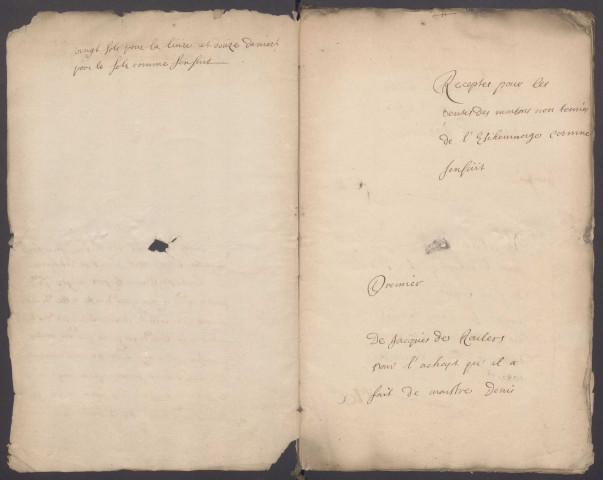 vingt sols pour la liure et douze deniers
pour le sols comme sensuit
Receptes pour les
ventes des maisons non
de l'Eschevinage comme
sensuit
Premier
De Jacques des
pour l'achapt qu'il a
fait de maistre Denis